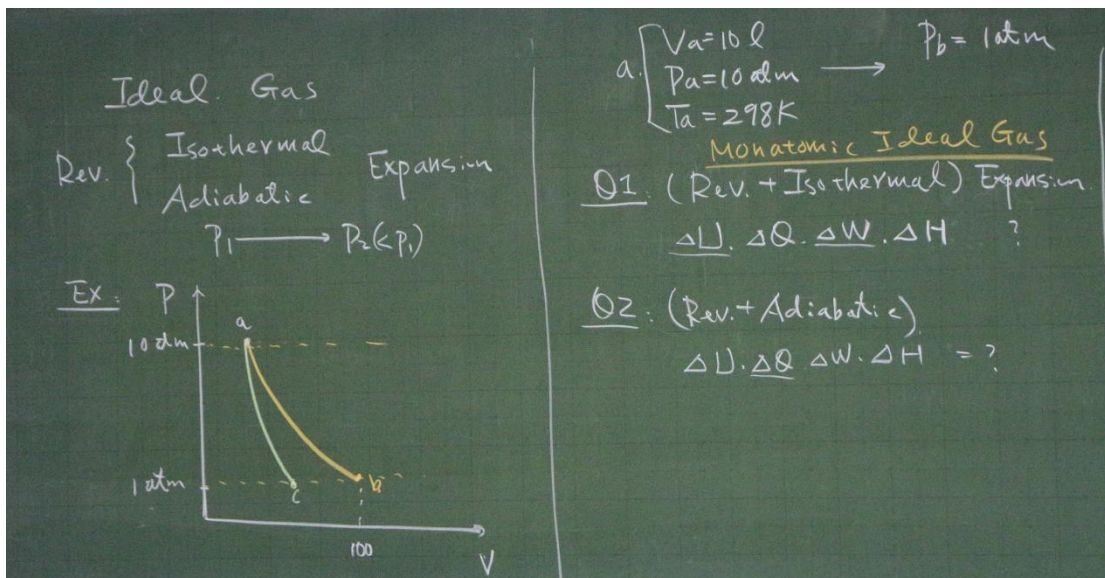 Ideal. Gas
Rev. { Isothermal
Adiabatic
Expansion
P₁ ⟶ P₂(<P₁)
Ex:
P
a
10 atm
1 atm
c
b
100
V
a. [ Va=10 l
Pa=10 atm ⟶ Pb= 1atm
Ta=298K
Monatomic Ideal Gas
Q1: (Rev.+Isothermal) Expansion.
ΔU. ΔQ. ΔW. ΔH ?
Q2: (Rev.+Adiabatic)
ΔU. ΔQ. ΔW. ΔH = ?